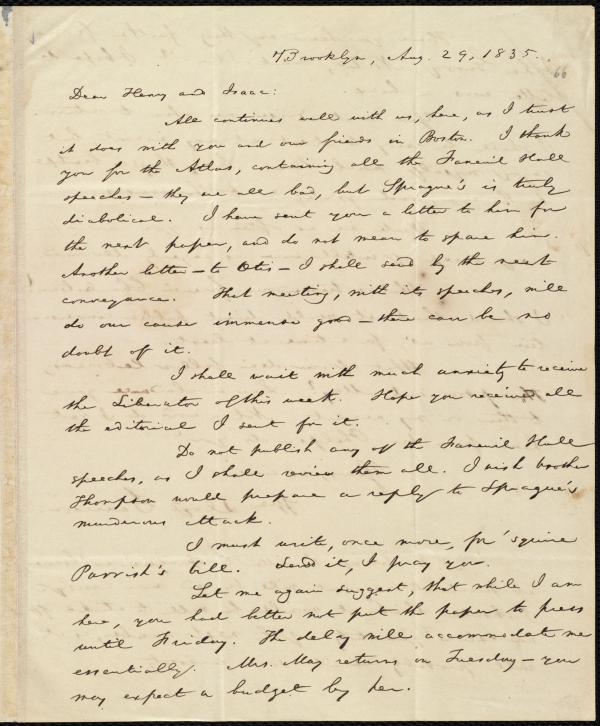 Brooklyn, Aug. 29, 1835.
66
Dear Henry and Isaac:
All continues well with us, here, as I trust
it does with you and our friends in Boston. I thank
you for the Atlas, containing all the Faneuil Hall
speeches — they are all bad, but Sprague's is truly
diabolical. I have sent you a letter to him for
the next paper, and do not mean to spare him.
Another letter — to Otis — I shall send by the next
conveyance. That meeting, with its speeches, will
do our cause immense good — there can be no
doubt of it.
I shall wait with much anxiety to receive
the Liberator of this week. Hope you received all
the editorial I sent for it.
Do not publish any of the Faneuil Hall
speeches, as I shall review them all. I wish brother
Thompson would prepare a reply to Sprague's
murderous attack.
I must write, once more, for 'squire
Parrish's bill. Send it, I pray you.
Let me again suggest, that while I am
here, you had better not put the paper to press
until Friday. The delay will accommodate me
essentially. Mrs. May returns on Tuesday — you
may expect a budget by her.